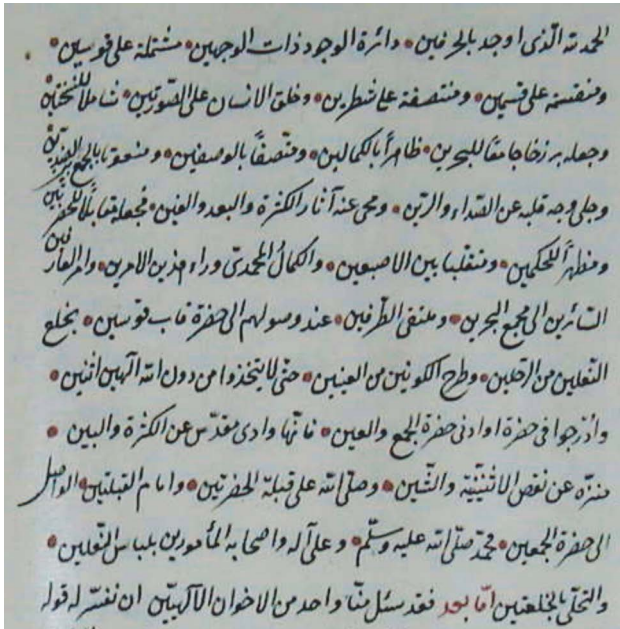 الحمد لله الّذى اوجد بالحرفين • دائرة الوجود ذات الوجهين • مشتملة على قوسين •
ومنقسمة على قسمين • ومنتصفة على شطرين • وخلق الانسان على الصّورتين • شاملا للنسختين
وجعله برزخا جامعًا للبحرين • ظاهرًا بالكمالين • ومتّصفًا بالوصفين • ومنعوتا بالجمع
وجلى وجه قلبه عن الصّداء والرّين • ومحى عنه آثار الكثرة والبعد والغين • فجعله مقابلًا للحضرتين
ومظهرًا للحكمين • ومتقلّبا بين الاصبعين • والكمالُ المحمّدىّ وراء هذين الامرين • وامر العارفين
السّائرين الى مجمع البحرين • وملتقى الطّرفين • عند وصولهم الى حضرة قاب قوسين • بخلع
النّعلين من الرّجلين • وطرح الكونين من العينين • حتّى لا يتّخذوا من دون الله الٓهين اثنين •
وادرجوا فى حضرة او ادنى حضرة الجمع والعين • فانّها وادى مقدّس عن الكثرة والبين •
منزّه عن نقص الاثنينيّة والشّين • وصلّى الله على قبلة الحضرتين • وامام القبلتين • الواصل
الى حضرة الجمعين • محمّد صلّى الله عليه وسلّم • وعلى آله واصحابه المأمورين بلباس النّعلين •
والتحلّى بالخلعتين امّا بعد فقد سئل منّا واحد من الاخوان الالٓهيّين ان نفسّر له قوله